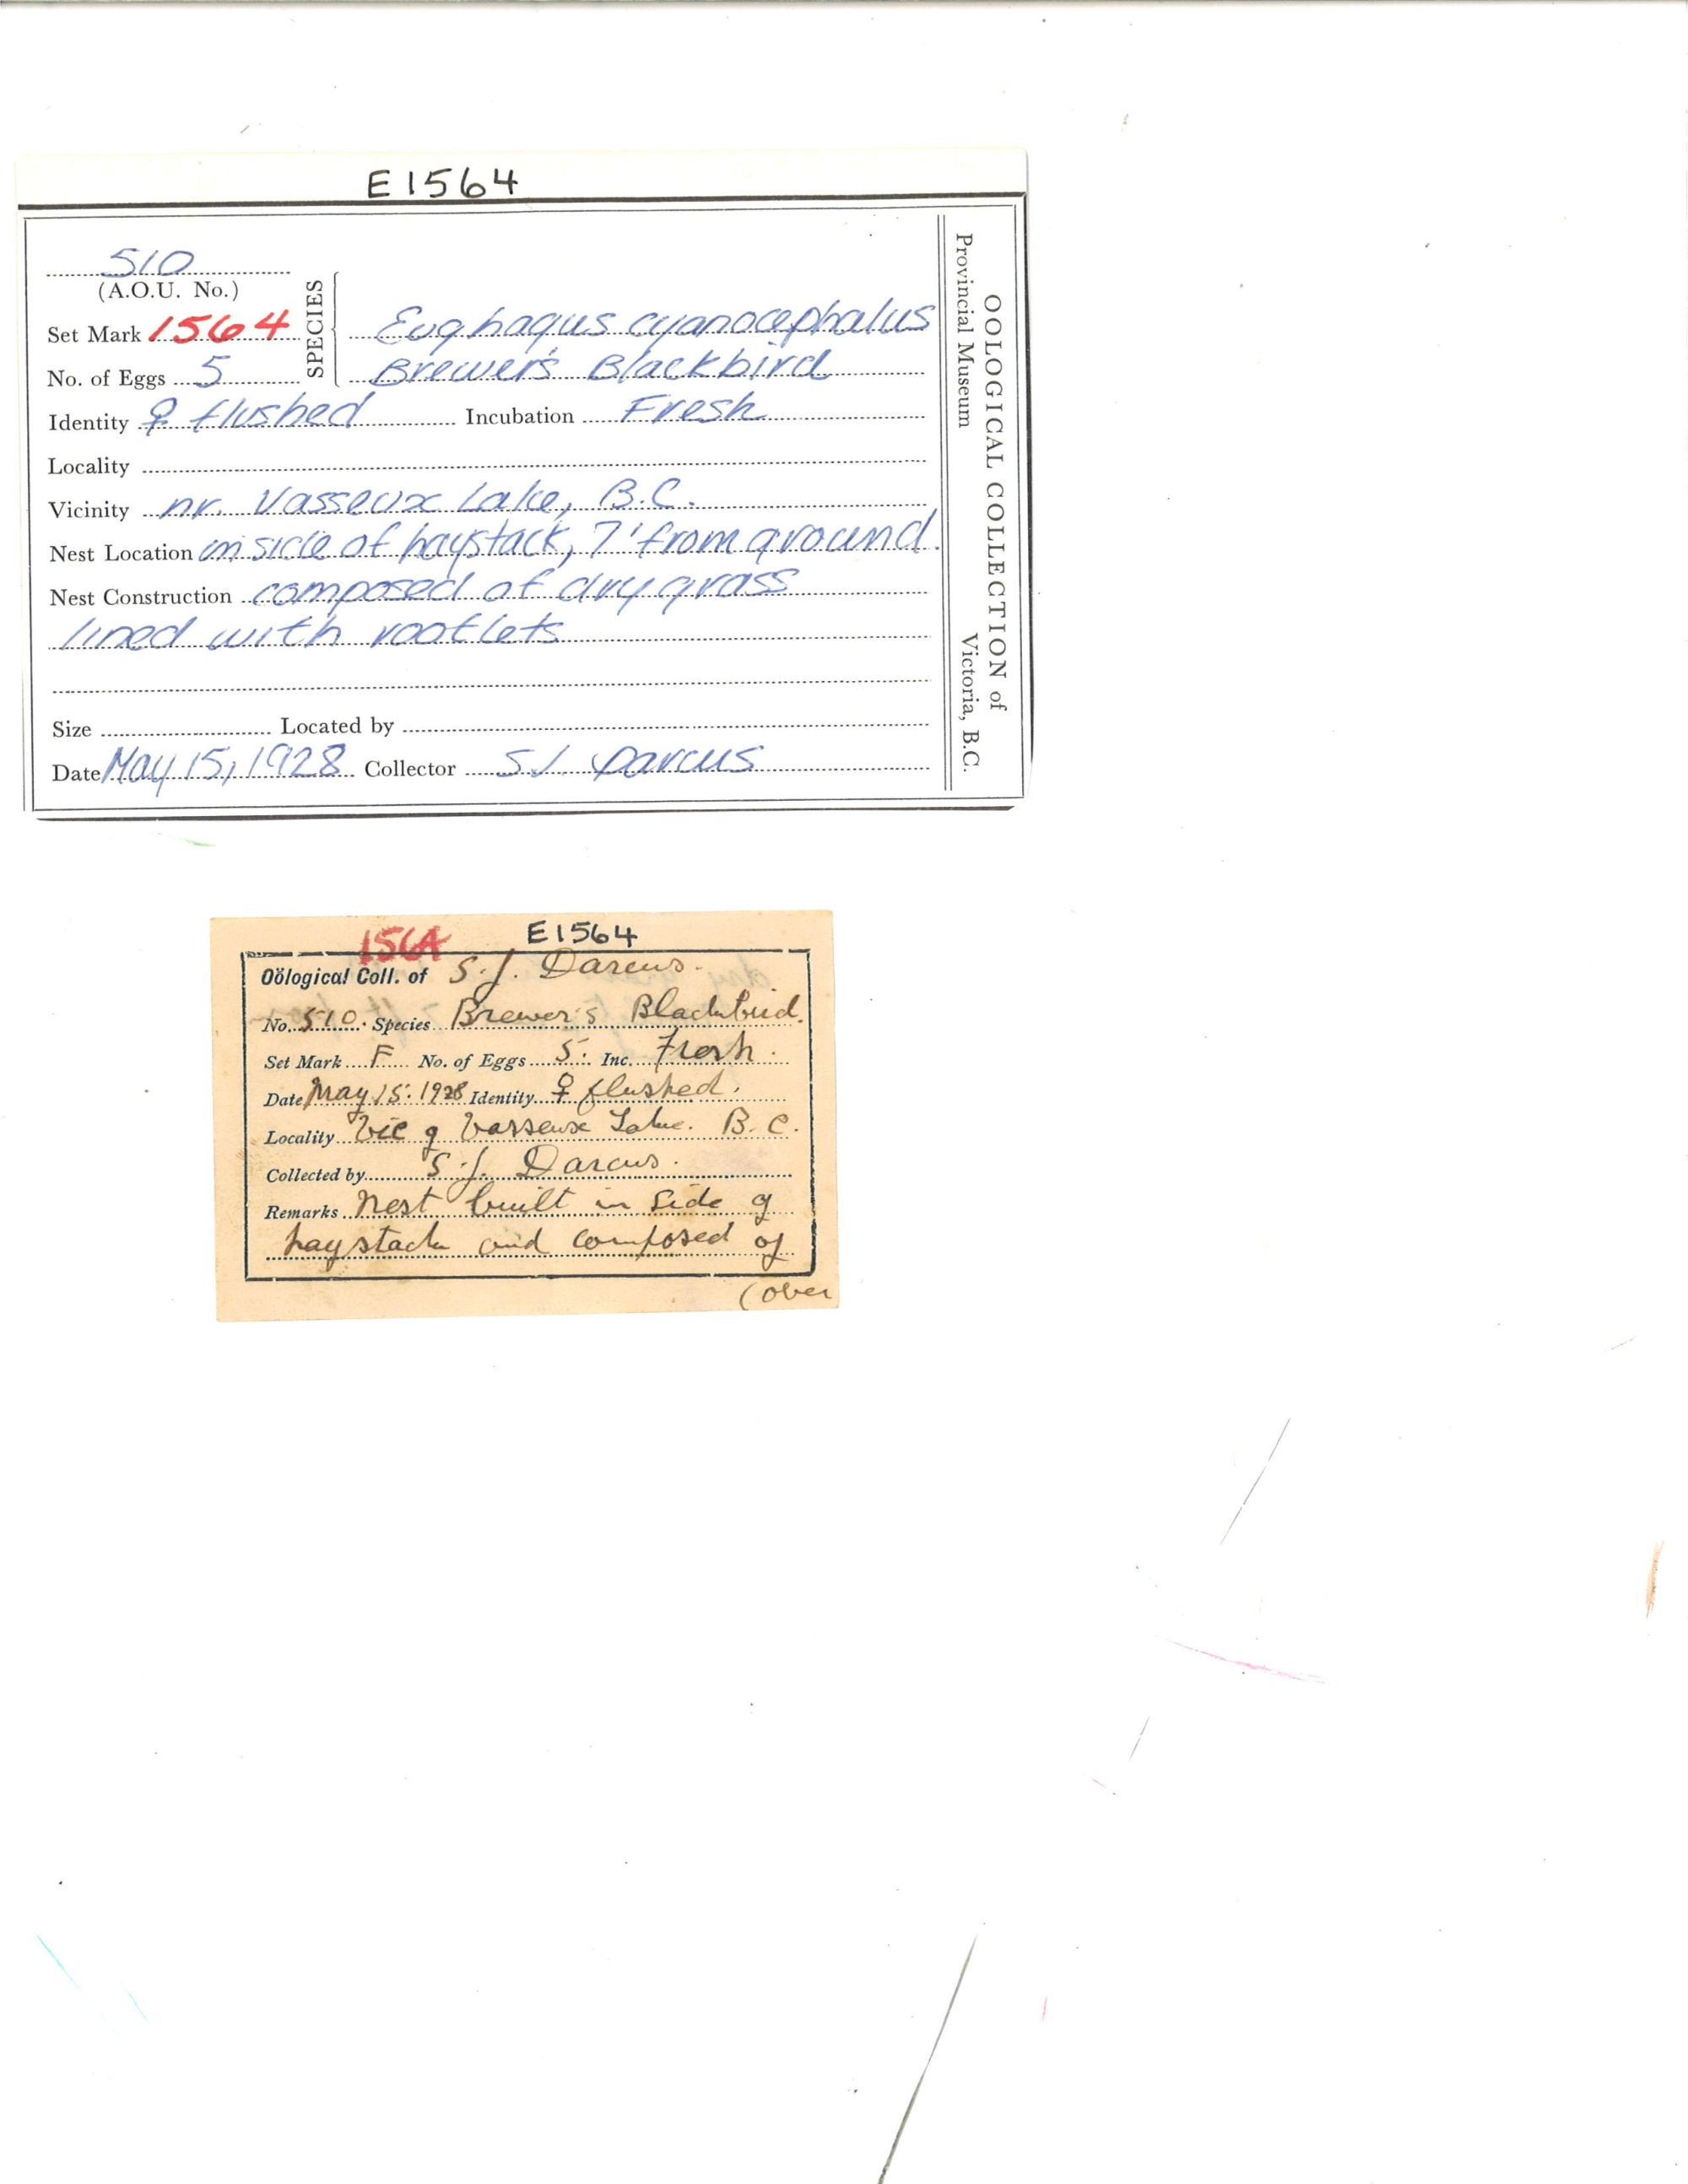 E1564
510
(A.O.U. No.)
SPECIES
Set Mark 1564
Euphagus cyanocephalus
No. of Eggs 5
Brewer's Blackbird
Identity ♀ flushed Incubation Fresh
Locality
Vicinity nr. Vasseux Lake, B.C.
Nest Location in side of haystack, 7' from ground.
Nest Construction composed of dry grass
lined with rootlets
Size Located by
Date May 15, 1928 Collector S.J. Darcus
OOLOGICAL COLLECTION of
Provincial Museum Victoria, B.C.
1564 E1564
Oölogical Coll. of S.J. Darcus.
No. 510. Species Brewer's Blackbird.
Set Mark F No. of Eggs 5. Inc. Fresh.
Date May 15. 1928 Identity ♀ flushed.
Locality Vic of Vasseux Lake. B.C.
Collected by S.J. Darcus.
Remarks Nest built in side of
haystack and composed of
(over